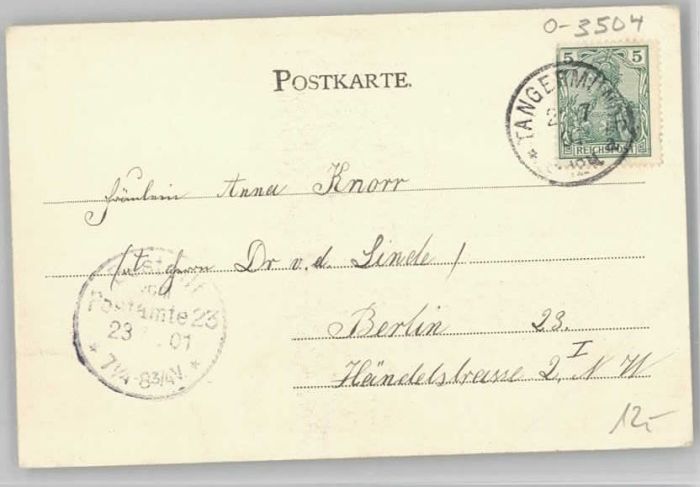 0-3504
POSTKARTE.
5 5
REICHSPOST
TANGERMÜNDE
Fräulein Anna Knorr
Dr v. d. Linde /
Berlin 23.
Händelstrasse 2, I N W
Postamte 23
23 01
* 7 1/4-8 3/4 V. *
12,-